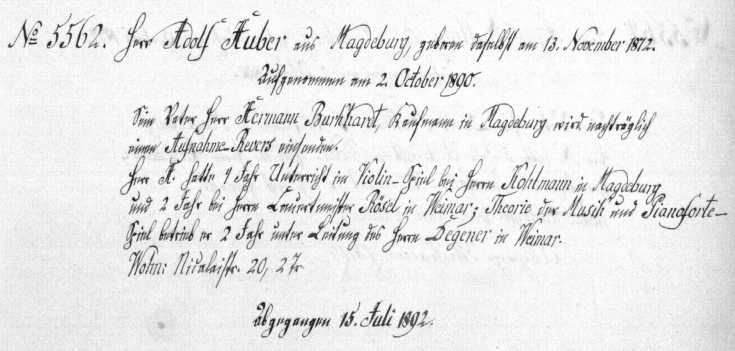 No 5562. Herr Adolf Huber aus Magdeburg, geboren daselbst am 13. November 1872.
Aufgenommen am 2. October 1890.
Sein Vater Herr Hermann Burkhardt, Kaufmann in Magdeburg wird nachträglich
einen Aufnahme-Revers einsenden.
Herr H. hatte 9 Jahr Unterricht im Violin-Spiel bei Herrn Kohlmann in Magdeburg
und 2 Jahr bei Herrn Concertmeister Rösel in Weimar; Theorie der Musik und Pianoforte-
Spiel betrieb er 2 Jahr unter Leitung des Herrn Degener in Weimar.
Wohn: Nicolaistr. 20, 2
Abgegangen 15. Juli 1892.